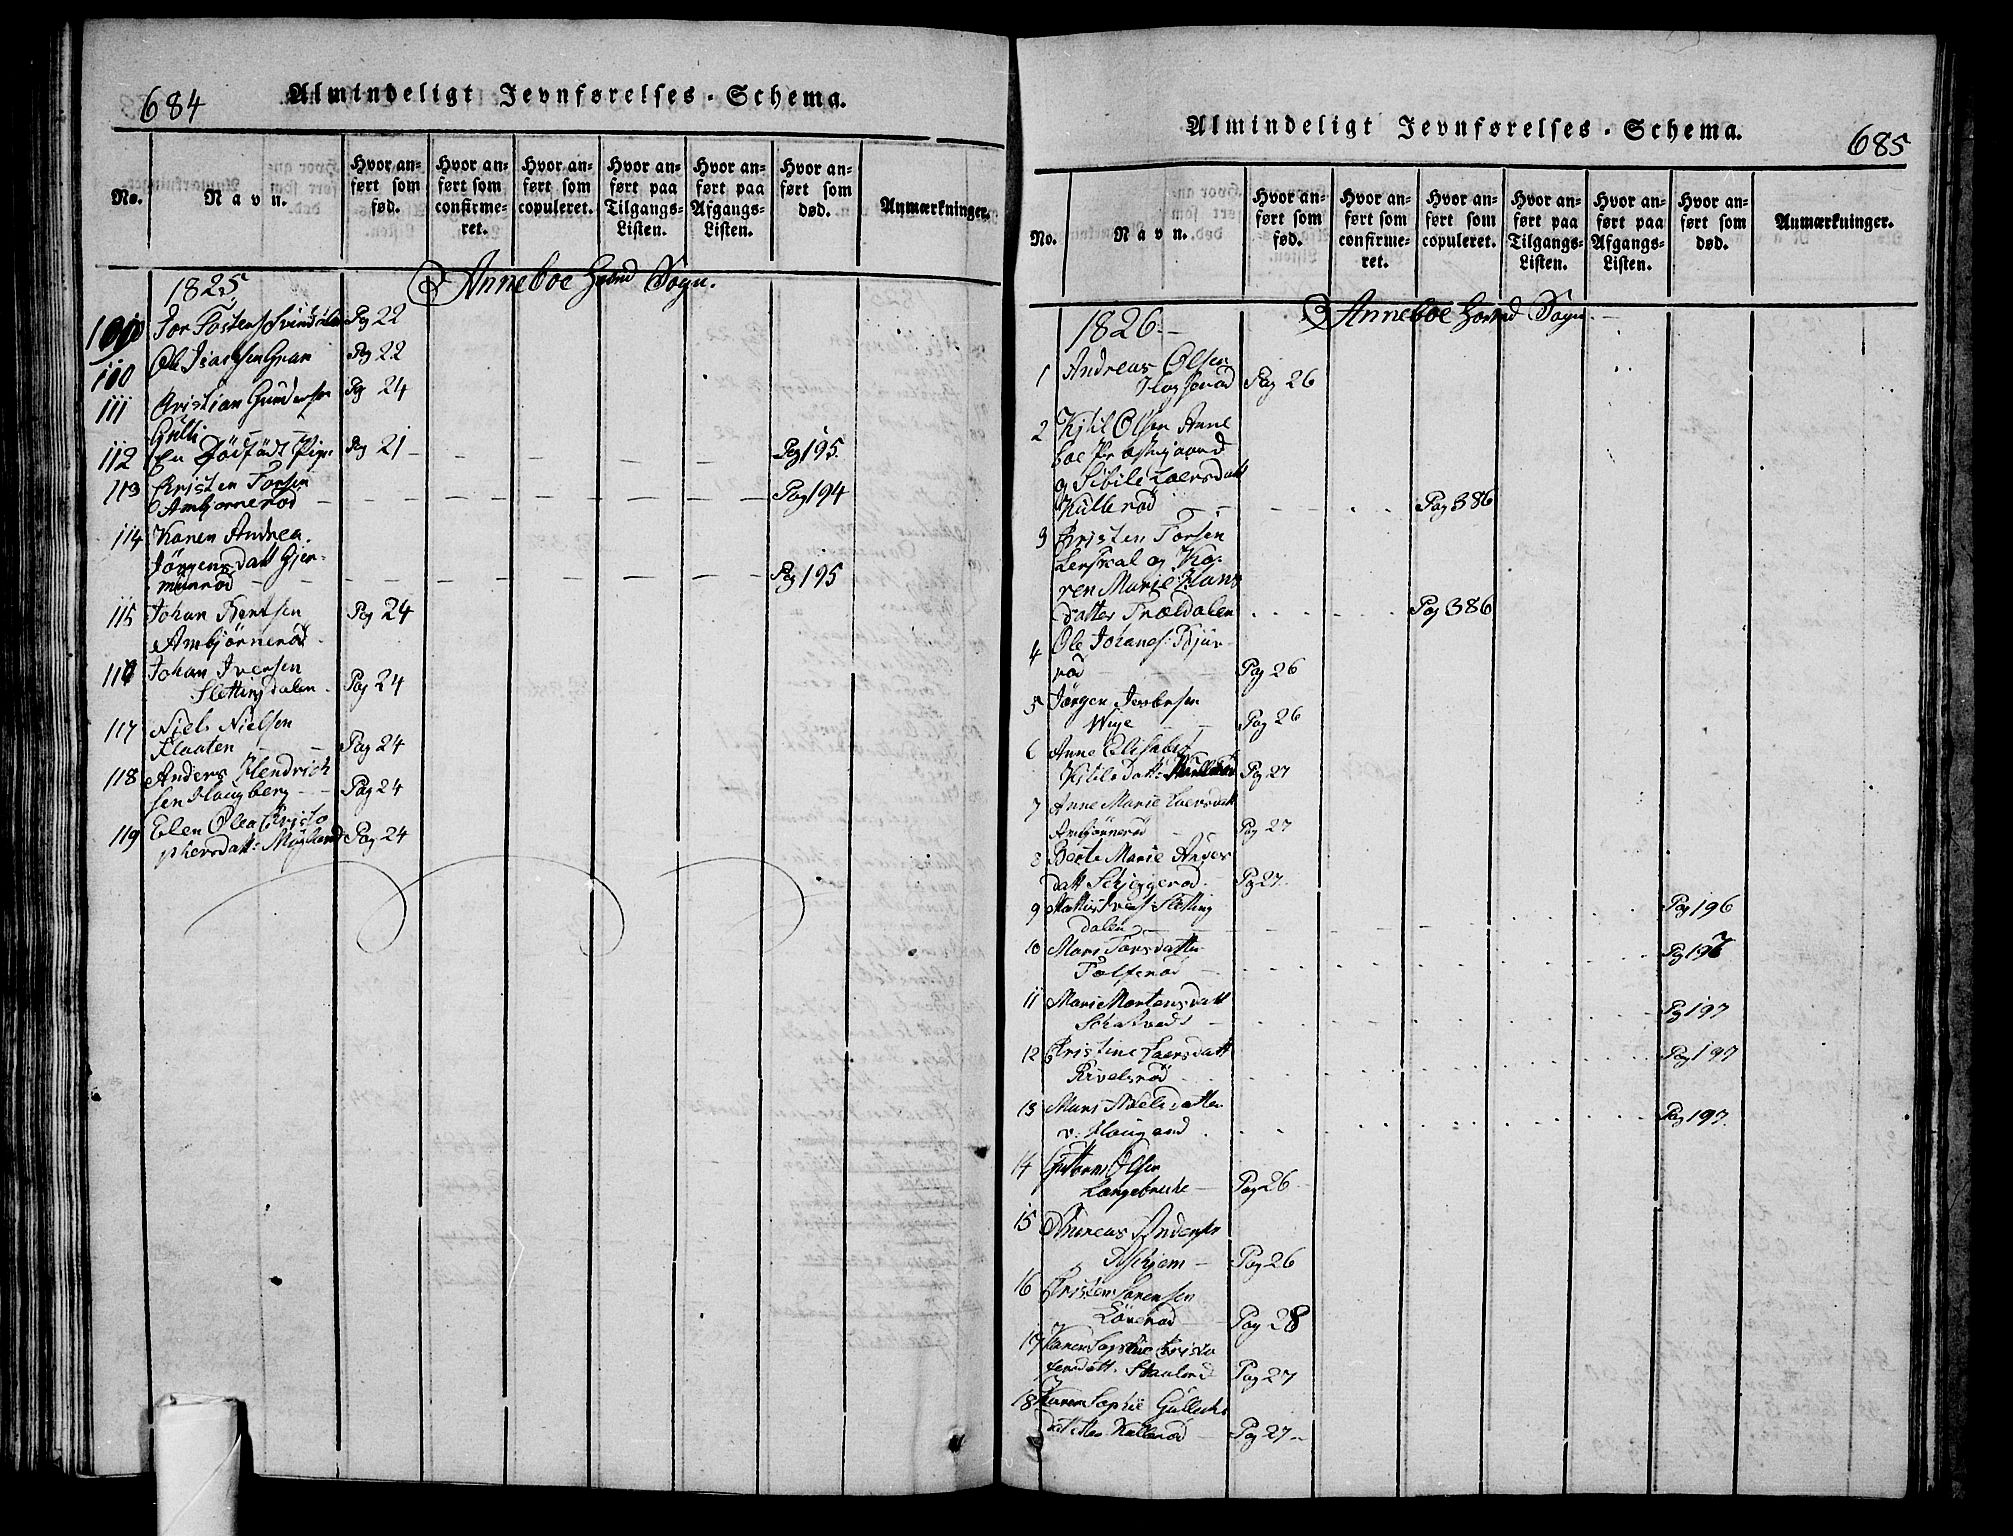 684
Almindeligt Jevnførelses-Schema.
No.
Navn.
Hvor anført som fød.
Hvor anført som confirmeret.
Hvor anført som copuleret.
Hvor anført paa Tilgangs-Listen.
Hvor anført paa Afgangs-Listen.
Hvor anført som død.
Anmærkninger.
1825
Anneboe Hoved Sogn.
Pag 22
110 Ole
Pag 22
111 Christian Gundersen
Pag 24
112 En Dödfödt Pige
Pag 21 Pag 195
113 Christen Torsen
Ambjörneröd
Pag 194
114 Karen Andrea
Jörgensdatt Gjer-
munröd
Pag 195
115 Johan Berntsen
Pag 24
Ambjörneröd
Johan Iversen
Slettingdalen
Pag 24
117 Niels Nielsen
Flaaten
Pag 24
118 Anders Hendrich
sen Haugberg
Pag 24
119 Elen Olea Christo
phersdatt: Möyland
Pag 24
Almindeligt Jevnførelses-Schema.
685
No.
Navn.
Hvor anført som fød.
Hvor anført som confirmeret.
Hvor anført som copuleret.
Hvor anført paa Tilgangs-Listen.
Hvor anført paa Afgangs-Listen.
Hvor anført som død.
Anmærkninger.
1826
Anneboe Hoved Sogn
1 Andreas Olsen
Pag 26
2 Kjtil Olsen Anne
boe Præstegaard
og Sibile Laersdatt
Kulleröd
Pag 386
3 Christen Torsen
og Ka-
ren Marie Hans
datter Trældalen
Pag 386
4 Ole Johanes:
röd
Pag 26
5 Jörgen Jacobsen
Pag 26
6 Anne Elisabet
Pag 27
7 Anne Marie Laersdatt
Ambjörneröd
Pag 27
8 Berte Marie Anders
datt Schjeggeröd
Pag 27
9 Sletting
dalen
Pag 196
10 Mari Torsdatter
Tolfsröd
Pag 197
11 Mari Mortensdatt
Pag 197
12 Christine Laersdatt
Rivelsröd
Pag 197
13 Mari Nielsdatter
v: Haugand
Pag 197
14 Guttorm Olsen
Langebreche
Pag 26
15 Andreas Andersen
Aschjem
Pag 26
16 Christen Sörensen
Löveröd
Pag 28
17 Karen Sophie Christo
fersdatt.
Pag 27
18 Karen Sophie Gullichs
datter Kulleröd
Pag 27